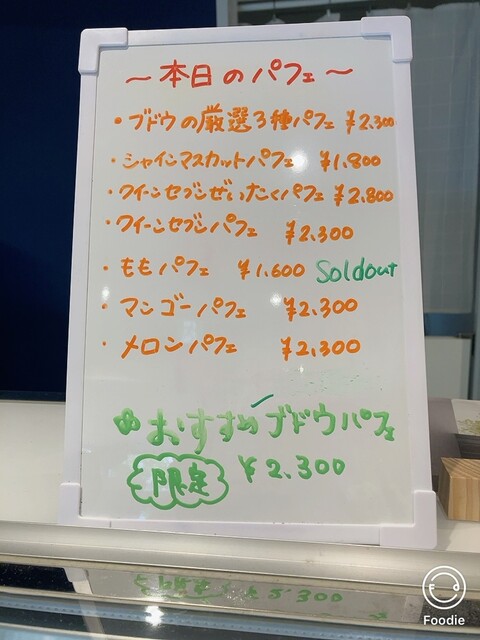 ～本日のパフェ～
・ブドウの厳選3種パフェ ¥2.300
・シャインマスカットパフェ ¥1.800
・クイーンセブンぜいたくパフェ ¥2.800
・クイーンセブンパフェ ¥2.300
・ももパフェ ¥1.600 Soldout
・マンゴーパフェ ¥2.300
・メロンパフェ ¥2.300
おすすめブドウパフェ
限定 ¥2.300
Foodie